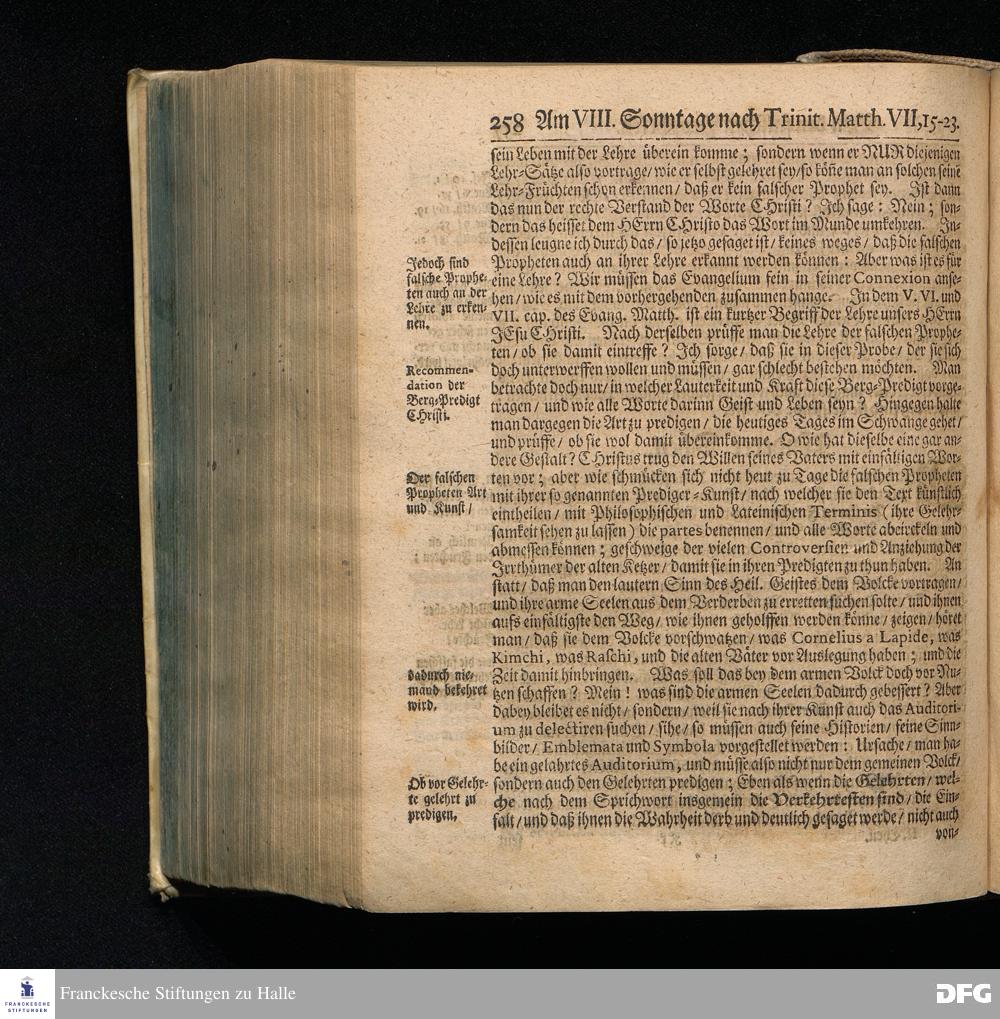 258 Am VIII. Sonntage nach Trinit. Matth. VII, 15-23.
sein Leben mit der Lehre überein komme; sondern wenn er NUR diejenigen
Lehr-Sätze also vortrage/ wie er selbst gelehret sey/ so köñe man an solchen seine
Lehr-Früchten schon erkennen/ daß er kein falscher Prophet sey. Ist dann
das nun der rechte Verstand der Worte CHristi? Ich sage: Nein; son-
dern das heisset dem HErrn CHristo das Wort im Munde umkehren. In-
dessen leugne ich durch das/ so jetzo gesaget ist/ keines weges/ daß die falschen
Propheten auch an ihrer Lehre erkannt werden können: Aber was ist es für
eine Lehre? Wir müssen das Evangelium fein in seiner Connexion anse-
hen/ wie es mit dem vorhergehenden zusammen hange. In dem V. VI. und
VII. cap. des Evang. Matth. ist ein kurtzer Begriff der Lehre unsers HErrn
JEsu CHristi. Nach derselben prüffe man die Lehre der falschen Prophe-
ten/ ob sie damit eintreffe? Ich sorge/ daß sie in dieser Probe/ der sie sich
doch unterwerffen wollen und müssen/ gar schlecht bestehen möchten. Man
betrachte doch nur/ in welcher Lauterkeit und Kraft diese Berg-Predigt vorge-
tragen/ und wie alle Worte darinn Geist und Leben seyn? Hingegen halte
man dargegen die Art zu predigen/ die heutiges Tages im Schwange gehet/
und prüffe/ ob sie wol damit übereinkomme. O wie hat dieselbe eine gar an-
dere Gestalt? CHristus trug den Willen seines Vaters mit einfältigen Wor-
ten vor; aber wie schmücken sich nicht heut zu Tage die falschen Propheten
mit ihrer so genannten Prediger-Kunst/ nach welcher sie den Text künstlich
eintheilen/ mit Philosophischen und Lateinischen Terminis (ihre Gelehr-
samkeit sehen zu lassen) die partes benennen/ und alle Worte abcirckeln und
abmessen können; geschweige der vielen Controversien und Anziehung der
Irrthümer der alten Ketzer/ damit sie in ihren Predigten zu thun haben. An
statt/ daß man den lautern Sinn des Heil. Geistes dem Volcke vortragen/
und ihre arme Seelen aus dem Verderben zu erretten suchen solte/ und ihnen
aufs einfältigste den Weg/ wie ihnen geholffen werden könne/ zeigen/ höret
man/ daß sie dem Volcke vorschwatzen/ was Cornelius a Lapide, was
Kimchi, was Raschi, und die alten Väter vor Auslegung haben; und die
Zeit damit hinbringen. Was soll das bey dem armen Volck doch vor Nu-
tzen schaffen? Mein! was sind die armen Seelen dadurch gebessert? Aber
dabey bleibet es nicht/ sondern/ weil sie nach ihrer Kunst auch das Auditori-
um zu delectiren suchen/ sihe/ so müssen auch seine Historien/ seine Sinn-
bilder/ Emblemata und Symbola vorgestellet werden: Ursache/ man ha-
be ein gelahrtes Auditorium, und müsse also nicht nur dem gemeinen Volck/
sondern auch den Gelehrten predigen; Eben als wenn die Gelehrten/ wel-
che nach dem Sprichwort insgemein die Verkehrtesten sind/ die Ein-
falt/ und daß ihnen die Wahrheit derb und deutlich gesaget werde/ nicht auch
von-
Jedoch sind
falsche Prophe-
ten auch an der
Lehre zu erken-
nen.
Recommen-
dation der
Berg-Predigt
CHristi.
Der falschen
Propheten Art
und Kunst/
dadurch nie-
mand bekehret
wird.
Ob vor Gelehr-
te gelehrt zu
predigen.
FRANCKESCHE
STIFTUNGEN
Franckesche Stiftungen zu Halle
DFG